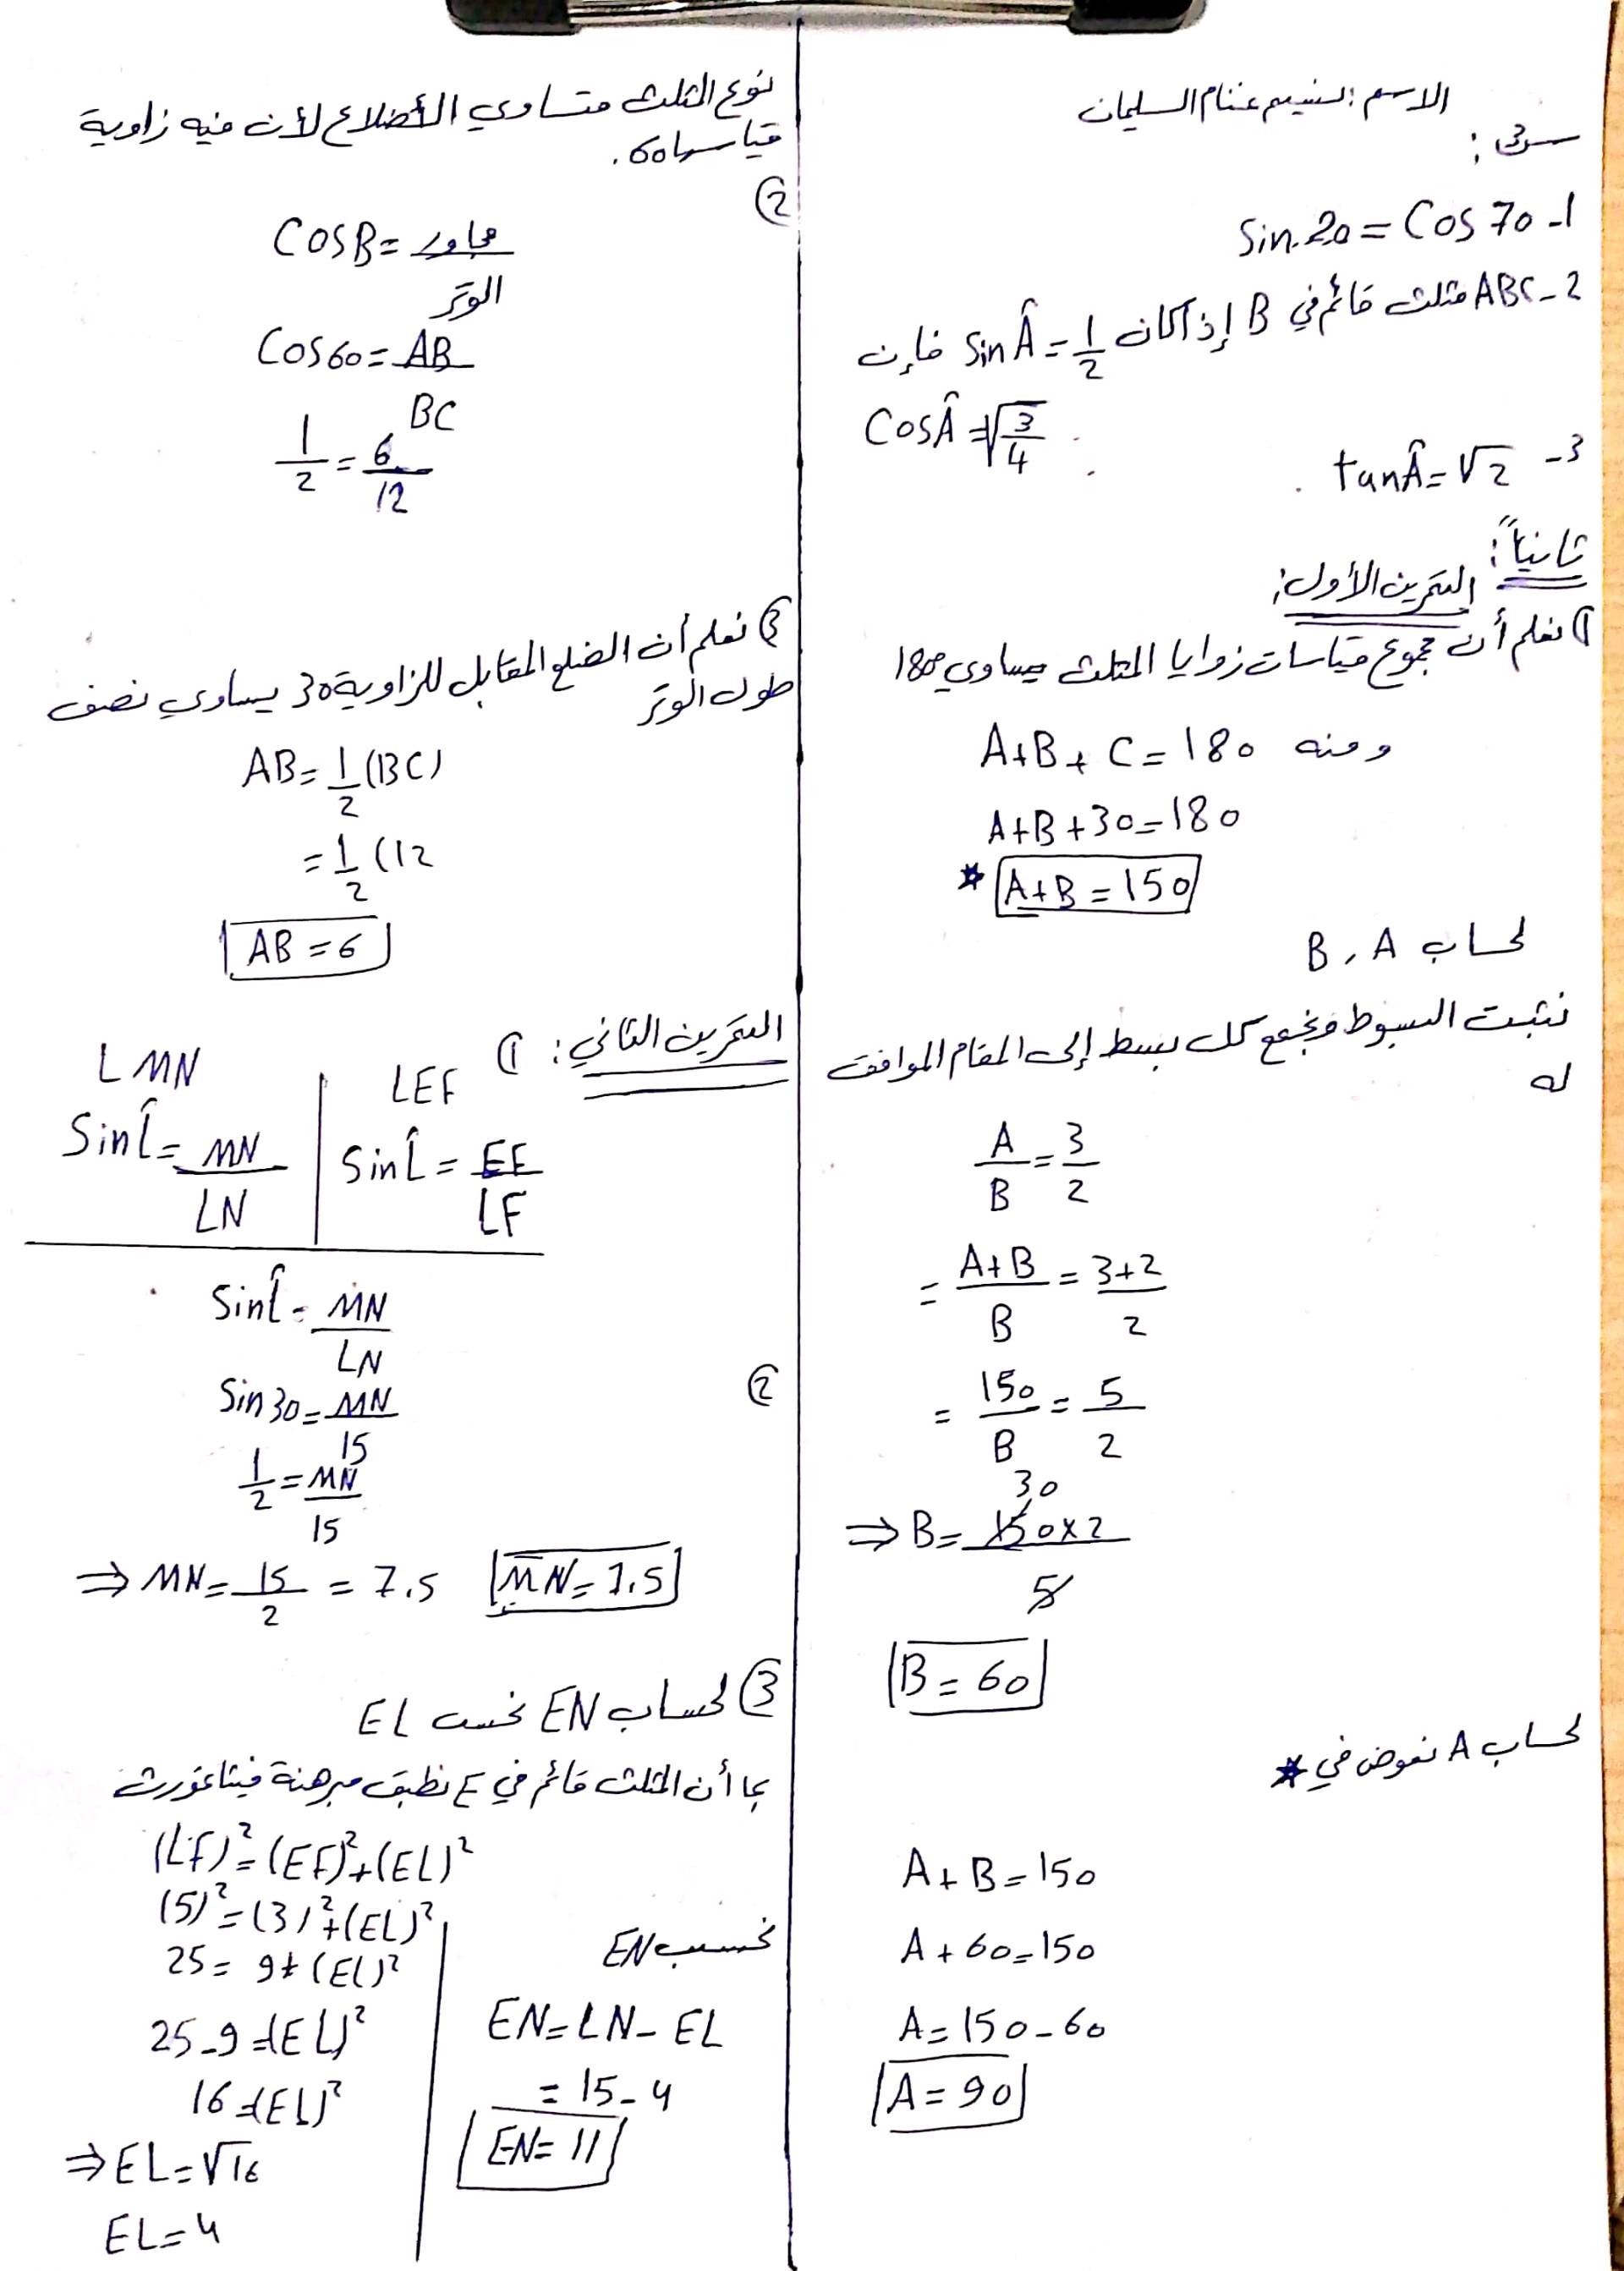 الاسم : نسيم غنام السليمان
س3 :
1- Sin 20 = Cos 70
2- ABC مثلث قائم في B إذا كان Sin Â = 1/2 فإن
Cos Â = √3/4 .
3- tan Â = √2 .
ثانياً :
التمرين الأول :
① نعلم أن مجموع قياسات زوايا المثلث يساوي 180
ومنه A + B + C = 180
A + B + 30 = 180
* A + B = 150
لحساب B , A
نثبت البسوط ونجمع كل بسط إلى المقام الموافق
له
A/B = 3/2
= A+B/B = 3+2/2
= 150/B = 5/2
30
⇒ B = 150×2/5
B = 60
لحساب A نعوض في *
A + B = 150
A + 60 = 150
A = 150 - 60
A = 90
نوع المثلث متساوي الأضلاع لأن فيه زاوية
قياسها 60 .
②
Cos B = مجاور/الوتر
Cos 60 = AB/BC
1/2 = 6/12
③ نعلم أن الضلع المقابل للزاوية 30 يساوي نصف
طول الوتر
AB = 1/2 (BC)
= 1/2 (12
AB = 6
التمرين الثاني : ①
LMN | LEF
Sin L̂ = MN/LN | Sin L̂ = EF/LF
Sin L̂ = MN/LN
②
Sin 30 = MN/15
1/2 = MN/15
⇒ MN = 15/2 = 7.5 MN = 7.5
③ لحساب EN نحسب EL
بما أن المثلث قائم في E نطبق مبرهنة فيثاغورث
(LF)² = (EF)² + (EL)²
(5)² = (3)² + (EL)²
25 = 9 + (EL)²
25 - 9 = (EL)²
16 = (EL)²
⇒ EL = √16
EL = 4
نحسب EN
EN = LN - EL
= 15 - 4
EN = 11